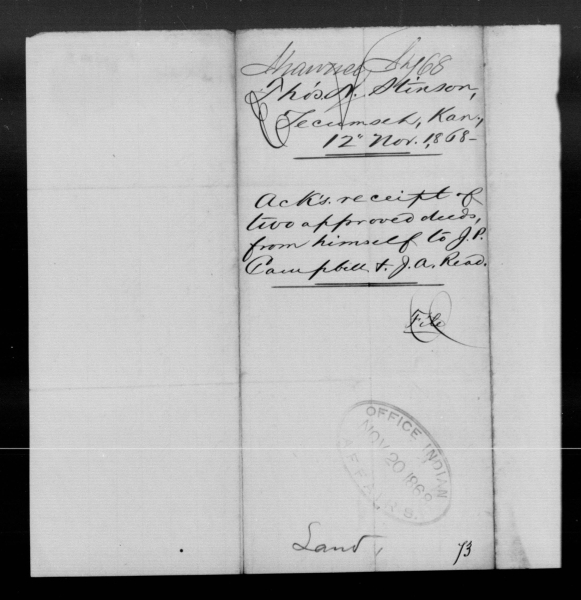 Shawnee S 468
Thos. N. Stinson,
Tecumseh, Kan,
12" Nov. 1868-
Ack's. receipt of
two approved deeds,
from himself to J.P.
Campbell & J.A. Read.
File
OFFICE INDIAN
NOV 20 1868
AFFAIRS.
Land,
73